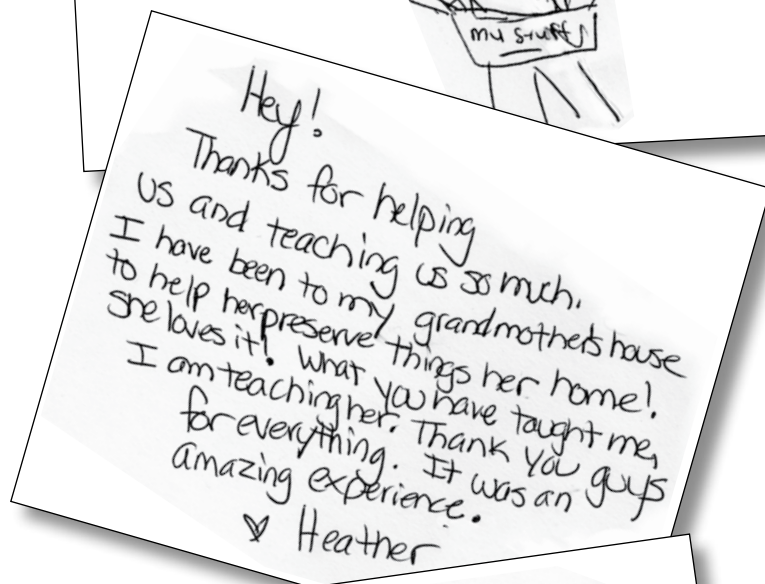 my stuff
Hey!
Thanks for helping
us and teaching us so much.
I have been to my grandmother's house
to help her preserve things her home!
She loves it! What you have taught me,
I am teaching her. Thank you guys
for everything. It was an
amazing experience.
♡ Heather